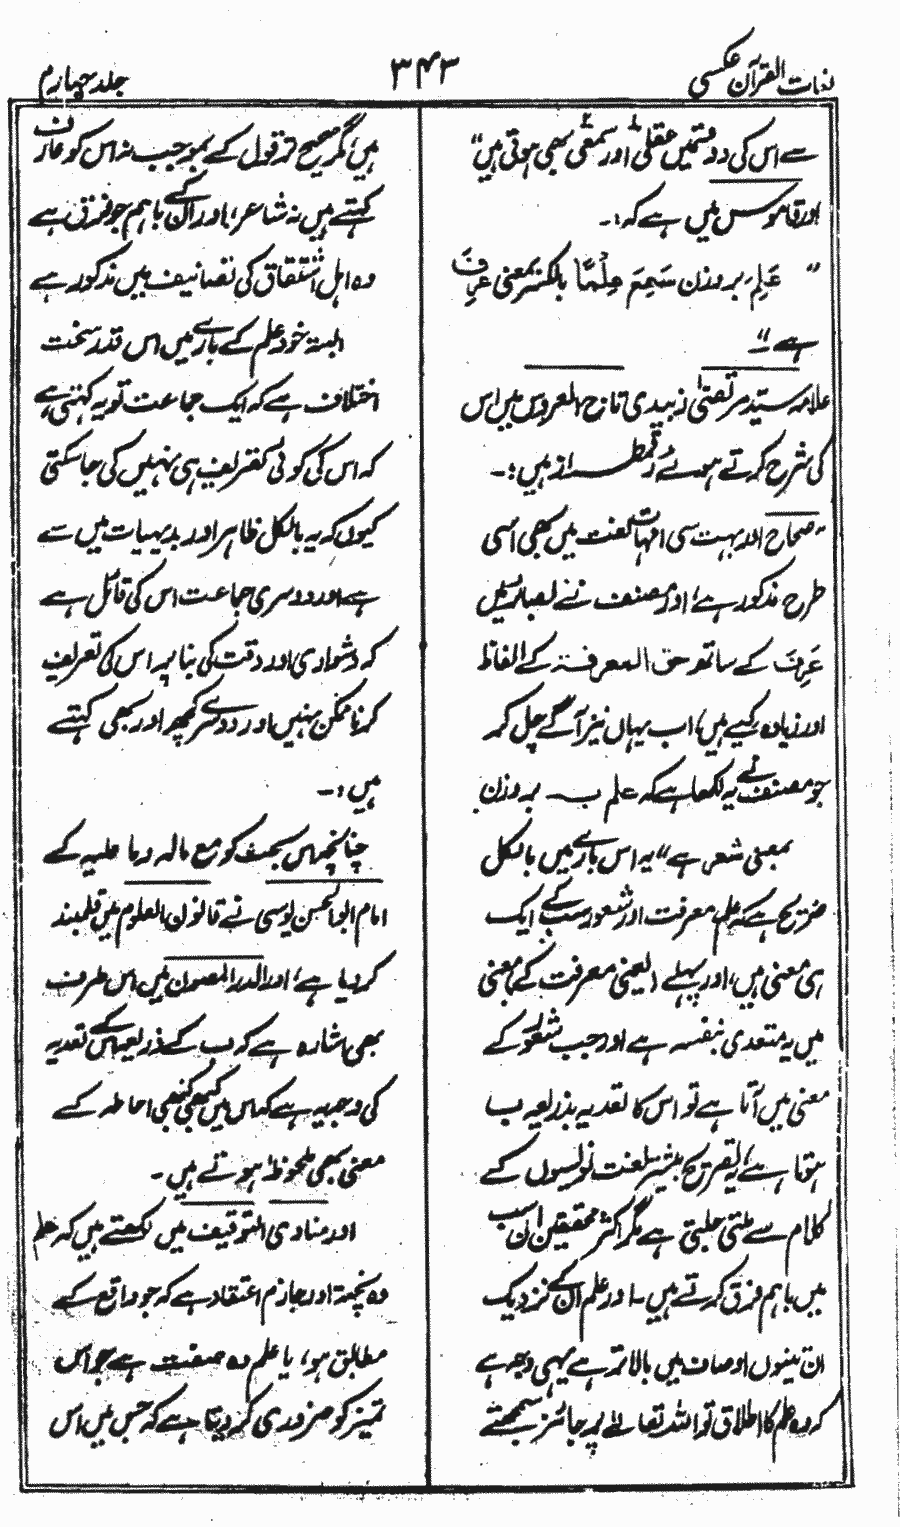 لغات القرآن عکسی
۳۴۳
جلد چہارم
سے اس کی دو قسمیں عقلی اور سمعی بھی ہوتی ہیں"
اور قاموس میں ہے کہ :-
" عَلِمَ بر وزن سَمِعَ عِلْمًا بالکسر بمعنی عَرَفَ
ہے"
علامہ سید مرتضیٰ زبیدی تاج العروس میں اس
کی شرح کرتے ہوئے رقمطراز ہیں :-
"صحاح اور بہت سی امہات لغت میں بھی اسی
طرح مذکور ہے، اور مصنف نے بصائر میں
عَرَفَ کے ساتھ حق المعرفۃ کے الفاظ
اور زیادہ کیے ہیں، اب یہاں نیز آگے چل کر
جو مصنف نے یہ لکھا ہے کہ علم بہ بر وزن
بمعنی شعر ہے" یہ اس بارے میں بالکل
صریح ہے کہ علم، معرفت اور شعور سب کے ایک
ہی معنی ہیں، اور پہلے (یعنی معرفت کے) معنی
میں یہ متعدی بنفسہ ہے اور جب شعور کے
معنی میں آتا ہے تو اس کا تعدیہ بذریعہ ب
ہوتا ہے، یہ تصریح بیشتر لغت نویسوں کے
کلام سے ملتی جلتی ہے مگر اکثر محققین ان سب
میں باہم فرق کرتے ہیں۔ اور علم ان کے نزدیک
ان تینوں اوصاف میں بالاتر ہے یہی وجہ ہے
کہ وہ علم کا اطلاق تو اللہ تعالیٰ پر جائز سمجھتے
ہیں، مگر صحیح تر قول کے بموجب نہ اس کو عارف
کہتے ہیں نہ شاعر، اور ان کے باہم جو فرق ہے
وہ اہل اشتقاق کی تصانیف میں مذکور ہے
البتہ خود علم کے بارے میں اس قدر سخت
اختلاف ہے کہ ایک جماعت تو یہ کہتی ہے
کہ اس کی کوئی تعریف ہی نہیں کی جا سکتی
کیوں کہ یہ بالکل ظاہر اور بدیہیات میں سے
ہے اور دوسری جماعت اس کی قائل ہے
کہ دشواری اور دقت کی بنا پر اس کی تعریف
کرنا ممکن نہیں اور دوسرے کچھ اور بھی کہتے
ہیں :-
چنانچہ اس بحث کو مع مالہ وما علیہ کے
امام ابو الحسن یوسی نے قانون العلوم میں قلمبند
کر دیا ہے، اور الدر المصون میں اس طرف
بھی اشارہ ہے کہ ب کے ذریعہ اس کے تعدیہ
کی وجہ یہ ہے کہ اس میں کبھی کبھی احاطہ کے
معنی بھی ملحوظ ہوتے ہیں ۔
اور مناوی التوقیف میں لکھتے ہیں کہ علم
وہ پختہ اور جازم اعتقاد ہے کہ جو واقع کے
مطابق ہو، یا علم وہ صفت ہے جو اس
تمیز کو ضروری کر دیتا ہے کہ جس میں اس